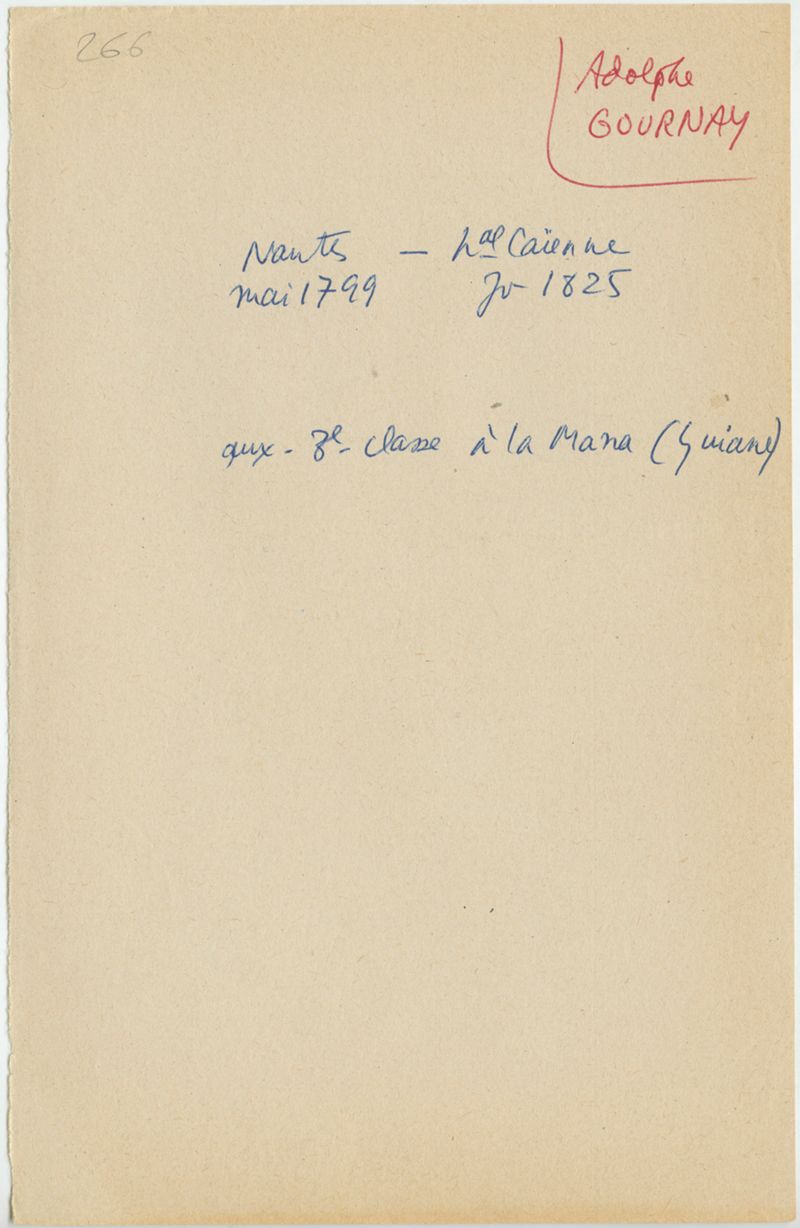 266
Adolphe
GOURNAY
Nantes — hal Caïenne
mai 1799 Jv- 1825
aux. 3e- classe à la Mana (Guiane)